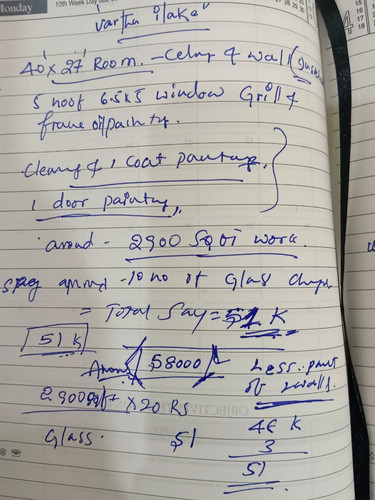 Monday
10th Week Day
varthu ilake
40' x 27' Room. - Celing & wall
5 no of 6.5x5 window Grill &
frame oil painting.
Cleaning & 1 Coat painting.
1 door painting,
around - 2900 Sq ft work.
around - 10 no of Glass change
= Total Say = 51 K
51 K
Around 58000
Less part
of walls.
2900 sqft x 20 Rs
Glass.
51
48 K
3
51
OBJECTIV